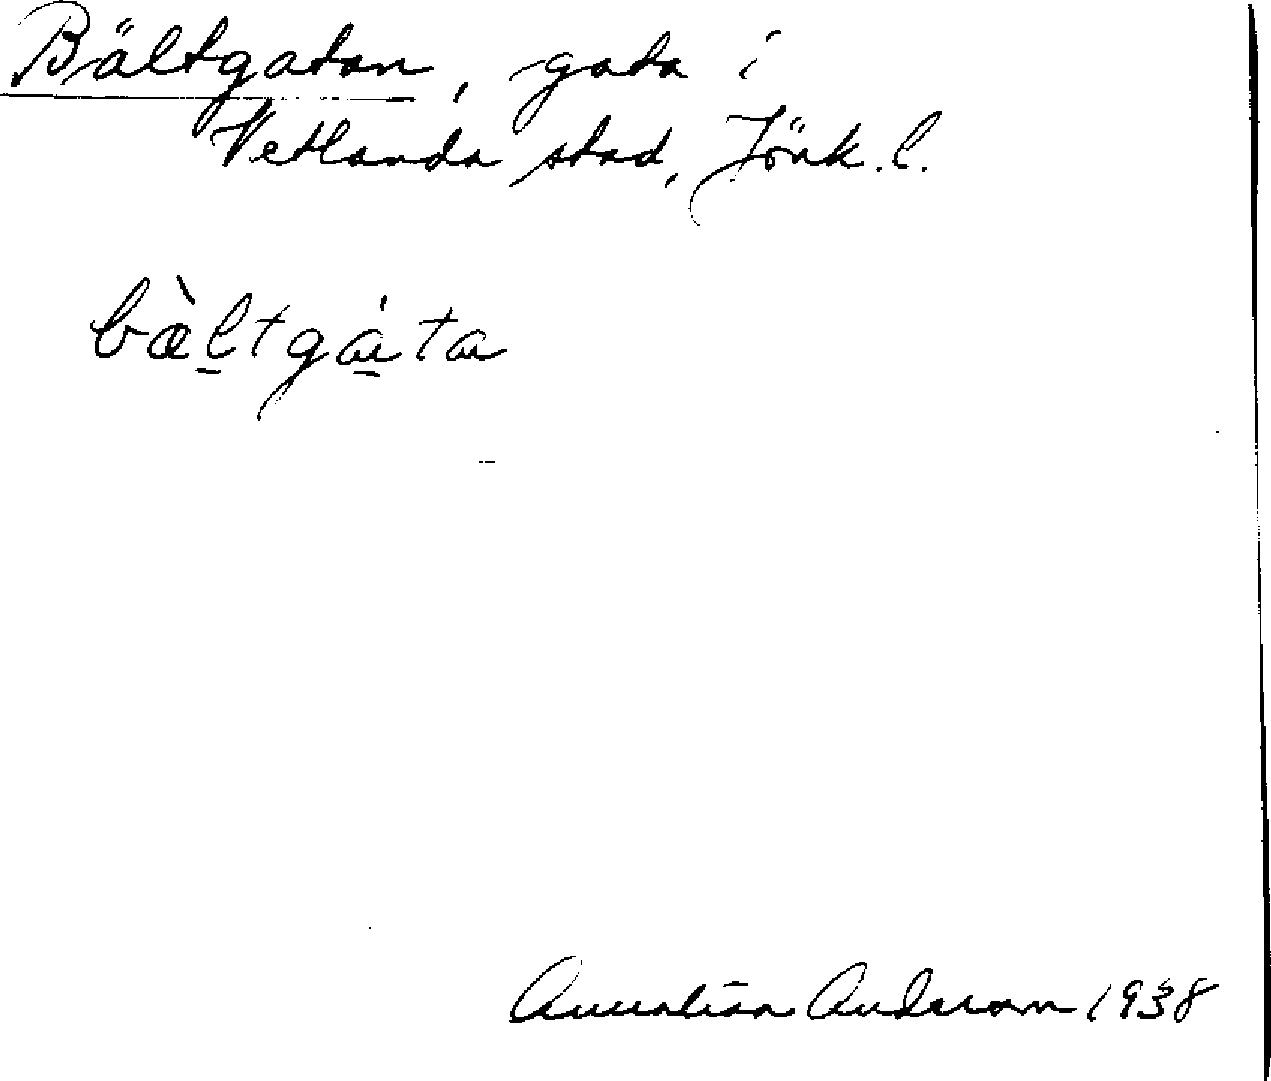 Bältgatan, gata i
Vetlanda stad, Jönk. l.
bæ̀l̠tgá̠ta
Annalisa Anderson 1938